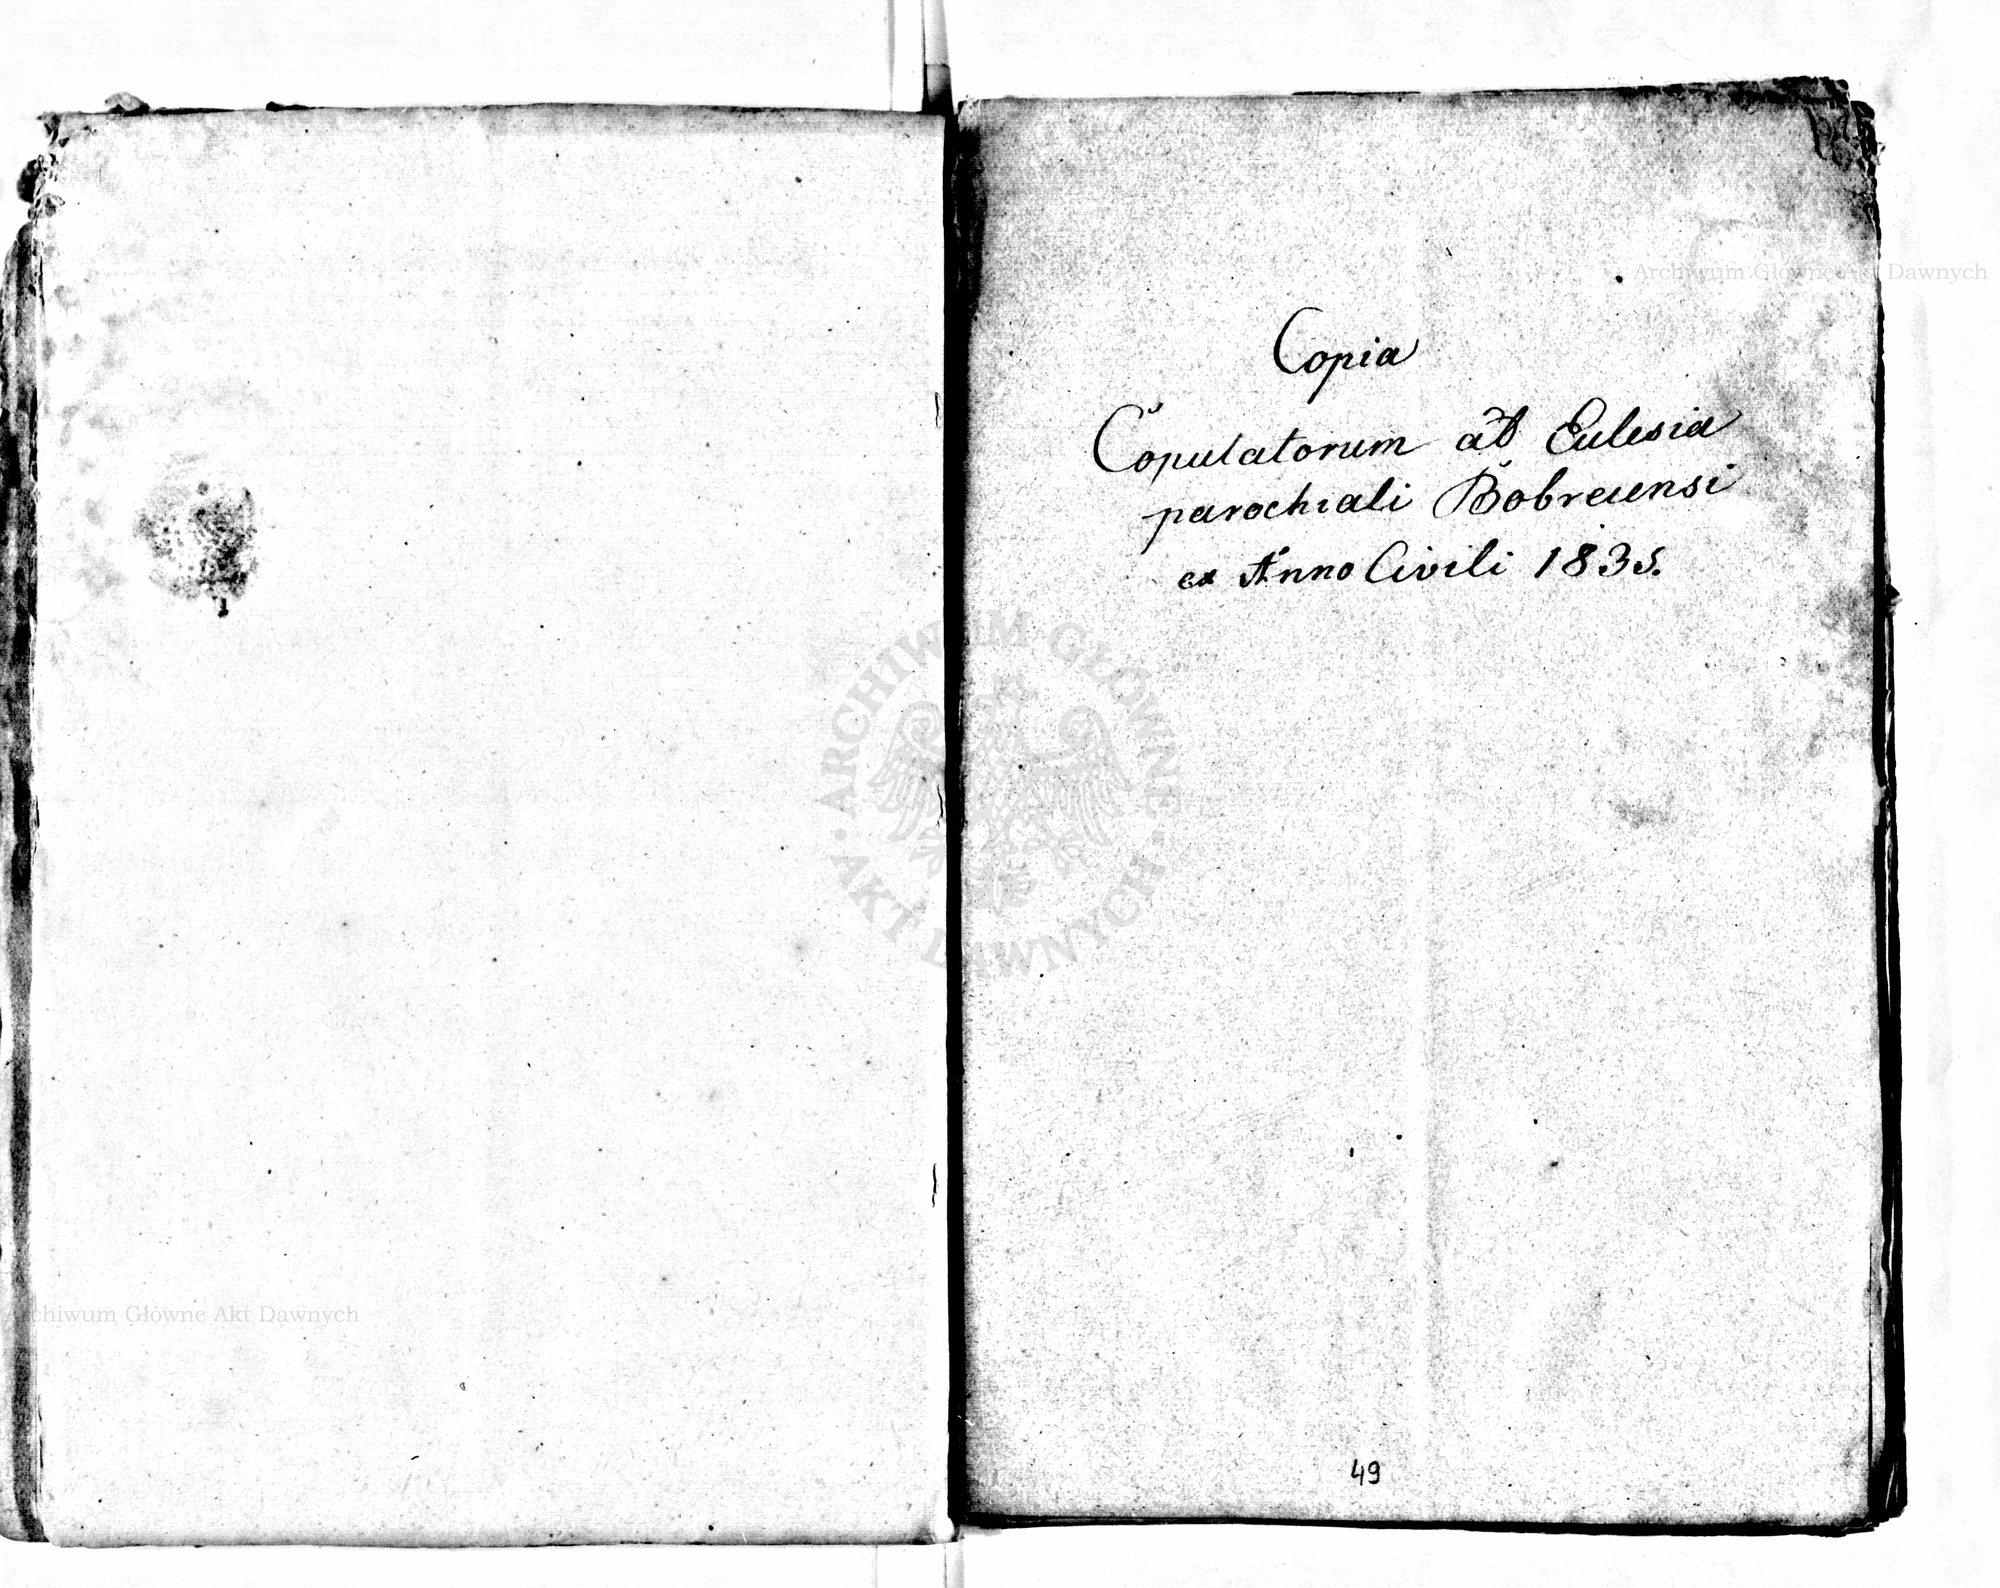 Archiwum Główne Akt Dawnych
Copia
Copulatorum ab Eclesia
parochiali Bobrecensi
ex Anno Civili 1835.
ARCHIWUM GŁÓWNE
AKT DAWNYCH
Archiwum Główne Akt Dawnych
49